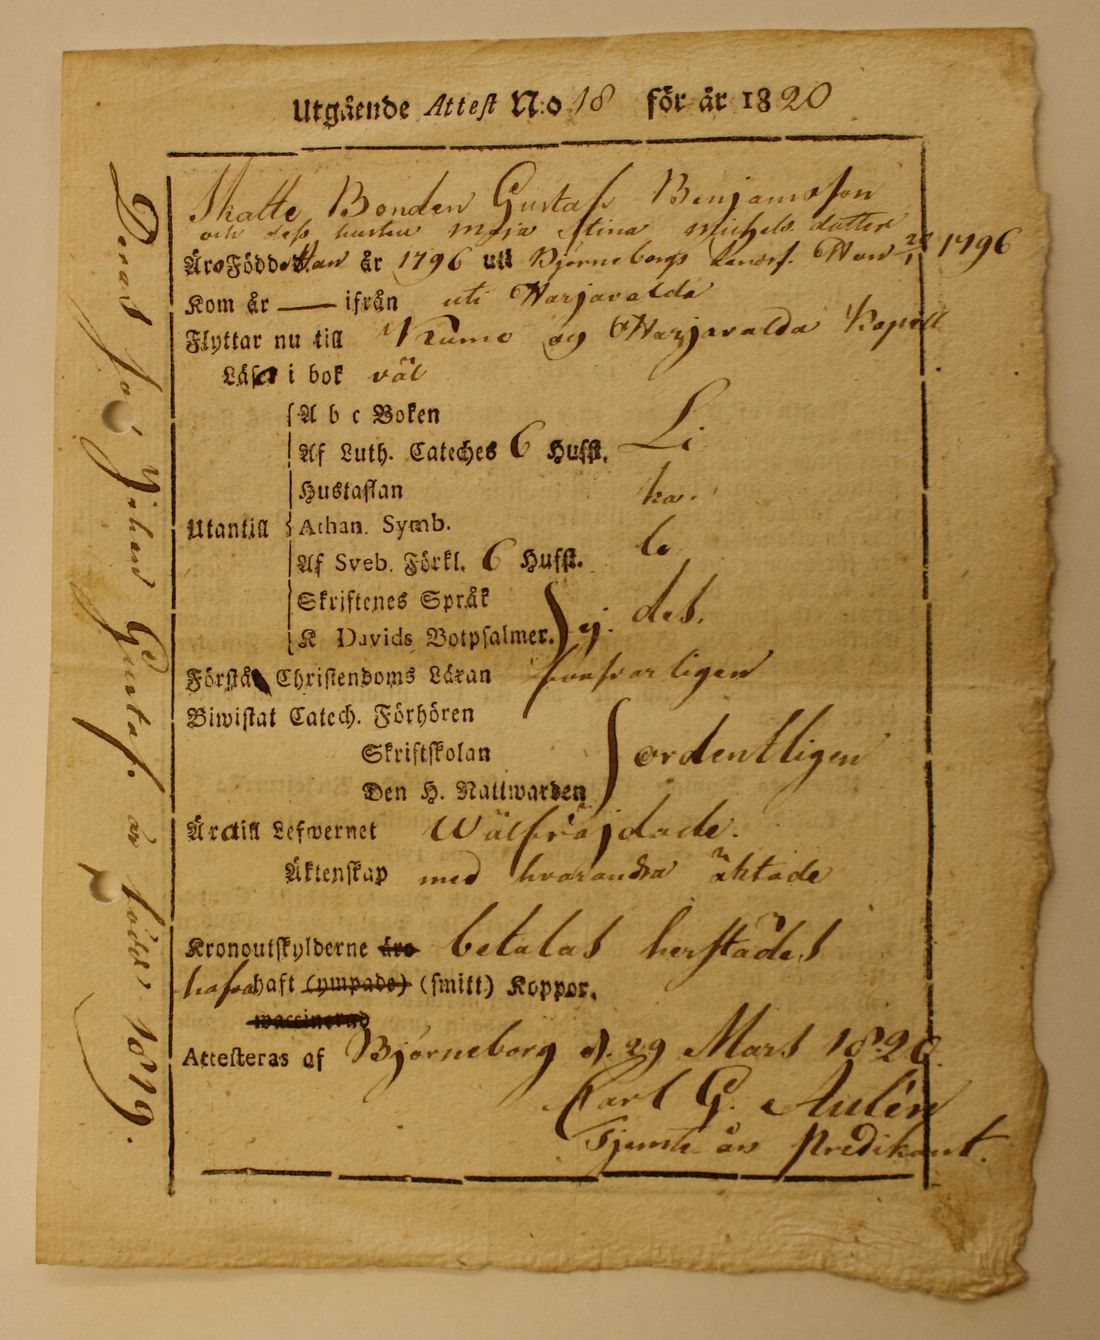 Utgående Attest N:o 18 för år 1820
Skatte Bonden Gustaf Benjamsson
och dess hustru Maja Stina Michels dotter
Äro Födde Han år 1796 uti Björneborgs Landsf. Hon 1796
Kom år — ifrån uti Harjavalda
Flyttar nu till Kumo og Harjavalda Kapell
Läsa i bok väl
A b c Boken
Af Luth. Cateches 6 Hufst. Li
Hustaflan ka.
Utantill Athan. Symb.
Af Sveb. Förkl. 6 Hufst. le
Skriftenes Språk
K Davids Botpsalmer. ej. des.
Förstå Christendoms Läran försvarligen
Biwistat Catech. Förhören
Skriftskolan ordentligen
Den H. Nattwarden
Ära till Lefwernet Wälfräjdade.
Äktenskap med hvarandra äktade
Kronoutskylderne äro betalas herstädes
hafva haft (ympade) (smitt.) Koppor.
waccinerad
Attesteras af Björneborg d. 29 Mars 1820.
Carl G. Aulén
Tjenste görs Predikant.
Deras Son Johan Gustaf. är född 1819.